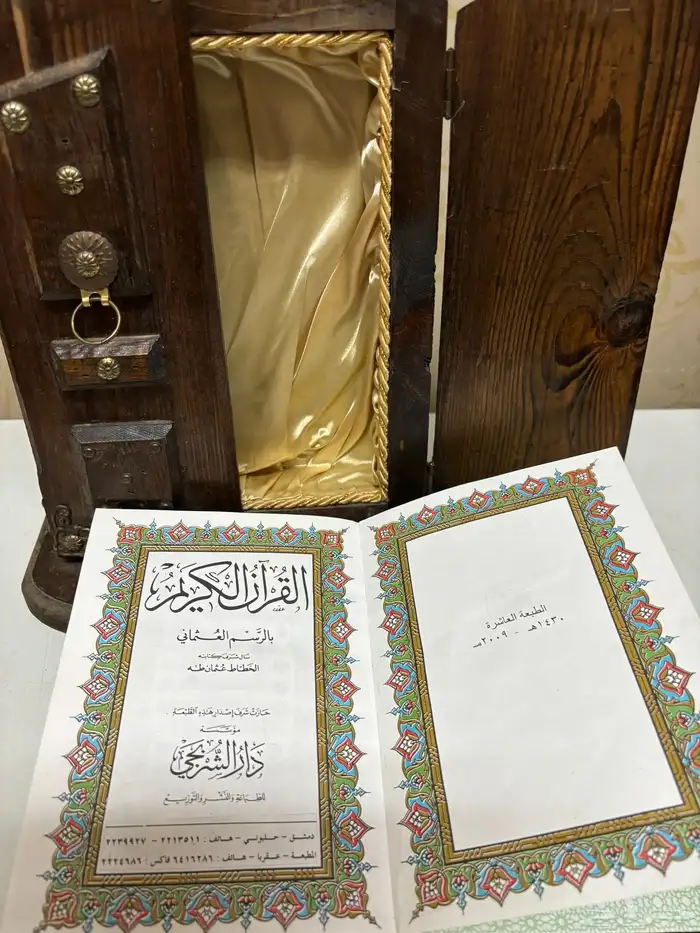 الطبعة العاشرة
١٤٣٠هـ - ٢٠٠٩مـ
القرآن الكريم
بالرسم العثماني
نال شرف كتابته
الخطاط عثمان طه
حازت شرف إصدار هذه الطبعة :
مؤسسة
دار الشربجي
للطباعة والنشر والتوزيع
دمشق - حلبوني - هاتف : ٢٢١٣٥١١ - ٢٢٣٩٩٢٧
المطبعة - عقربا - هاتف : ٦٤١٦٢٨٦ فاكس : ٢٢٢٤٦٨٦